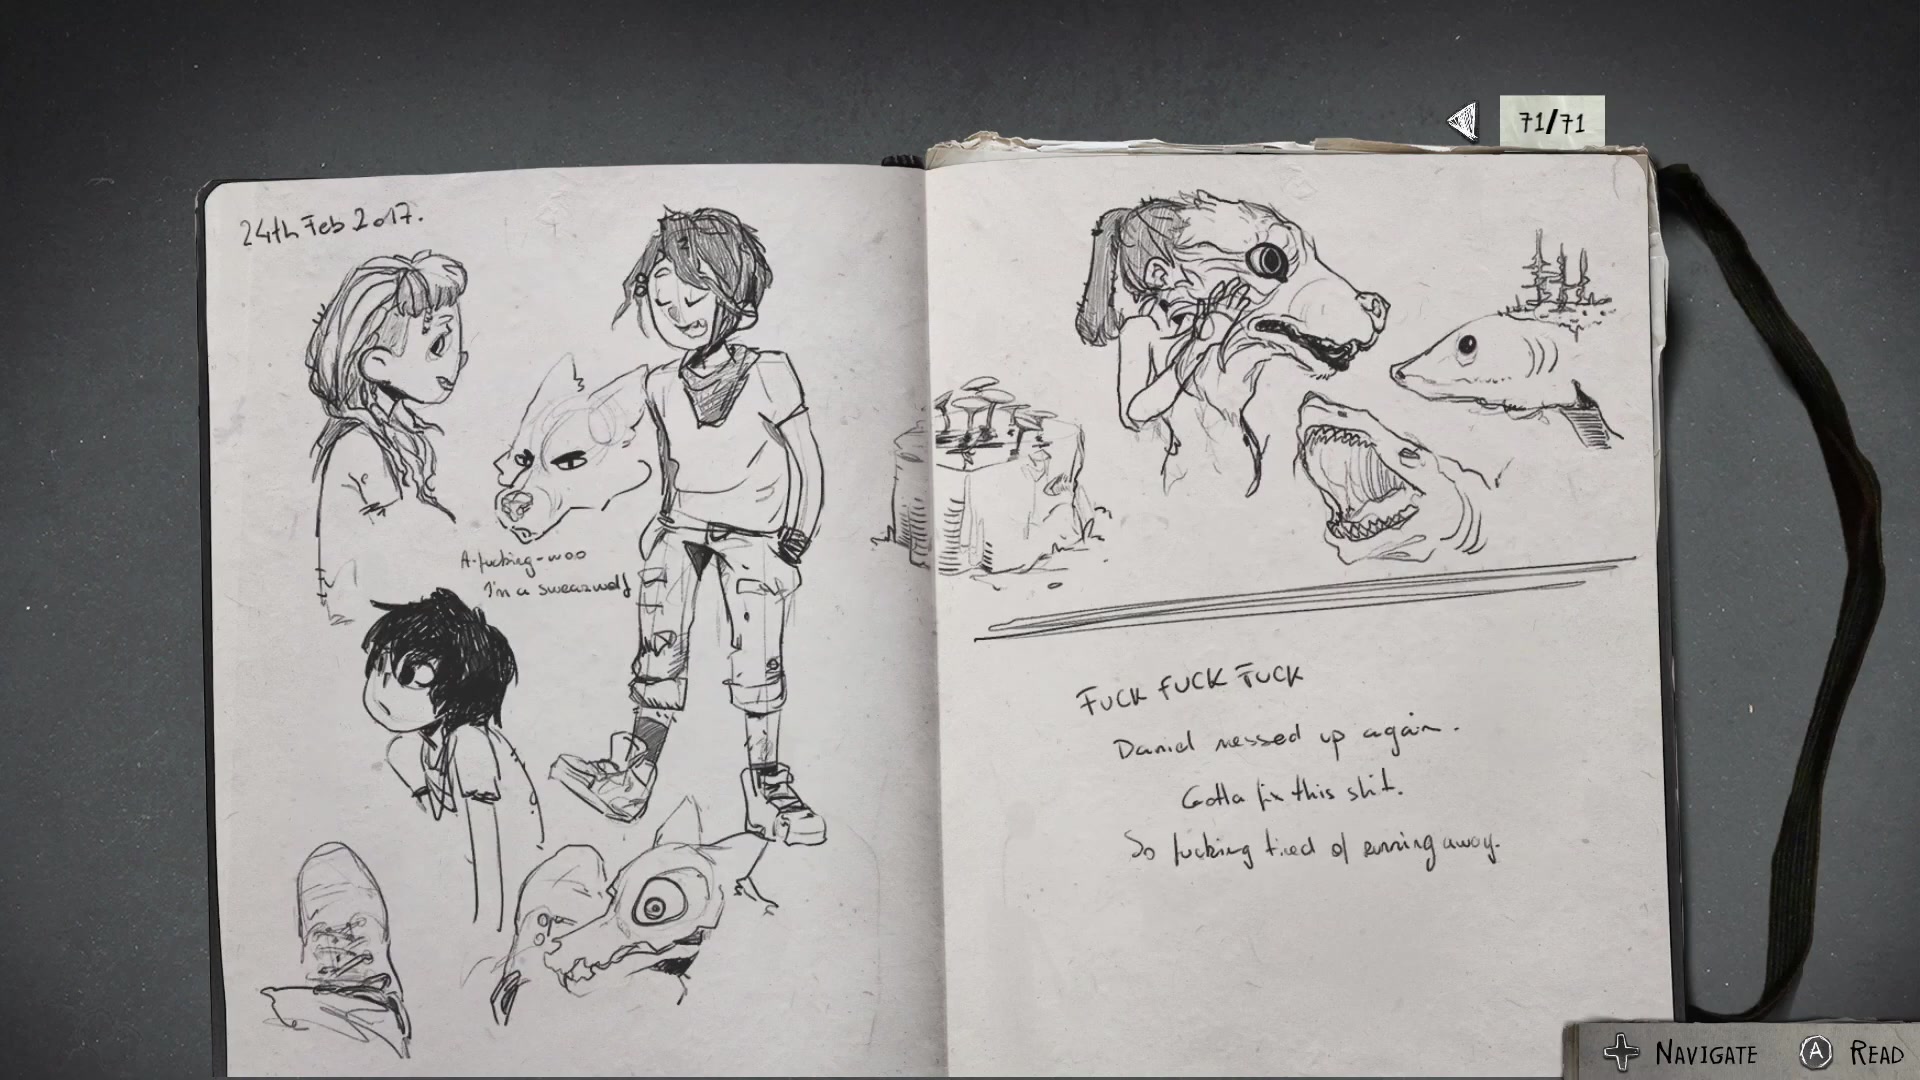 71/71
24th Feb 2017.
A-fucking-woo
I'm a swearwolf
FUCK FUCK FUCK
Daniel messed up again.
Gotta fix this shit.
So fucking tired of running away.
NAVIGATE
A READ